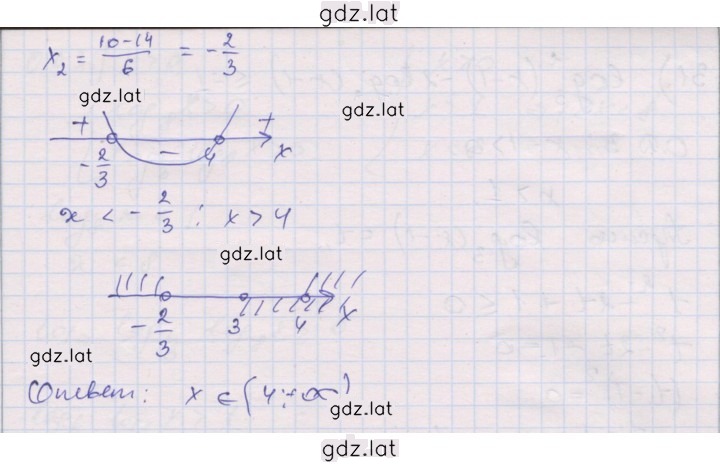 gdz.lat
x₂ = (10-14)/6 = -2/3
gdz.lat
gdz.lat
+ - +
-2/3 4 x
x < -2/3 ; x > 4
gdz.lat
-2/3 3 4 x
gdz.lat
Ответ: x ∈ (4;+∞)
gdz.lat
gdz.lat